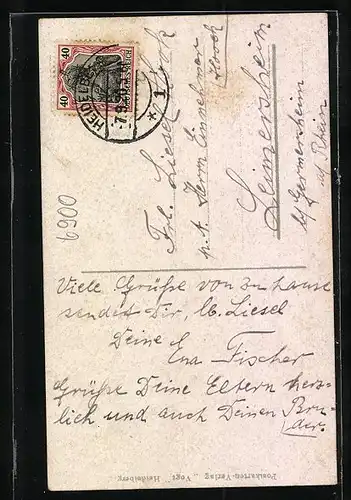 40 40
DEUTSCHES REICH
HEIDELBERG
* 1
Frl. Liesel Hock
p. A. Herrn Einnehmer
Hock
Leimersheim
b/ Germersheim
a/ Rhein
6900
Viele Grüße von zu hause
sendet Dir, lb. Liesel
Deine
Ena Fischer
Grüße Deine Eltern herz-
lich und auch Deinen Bru-
der.
Postkarten-Verlag Vogt Heidelberg